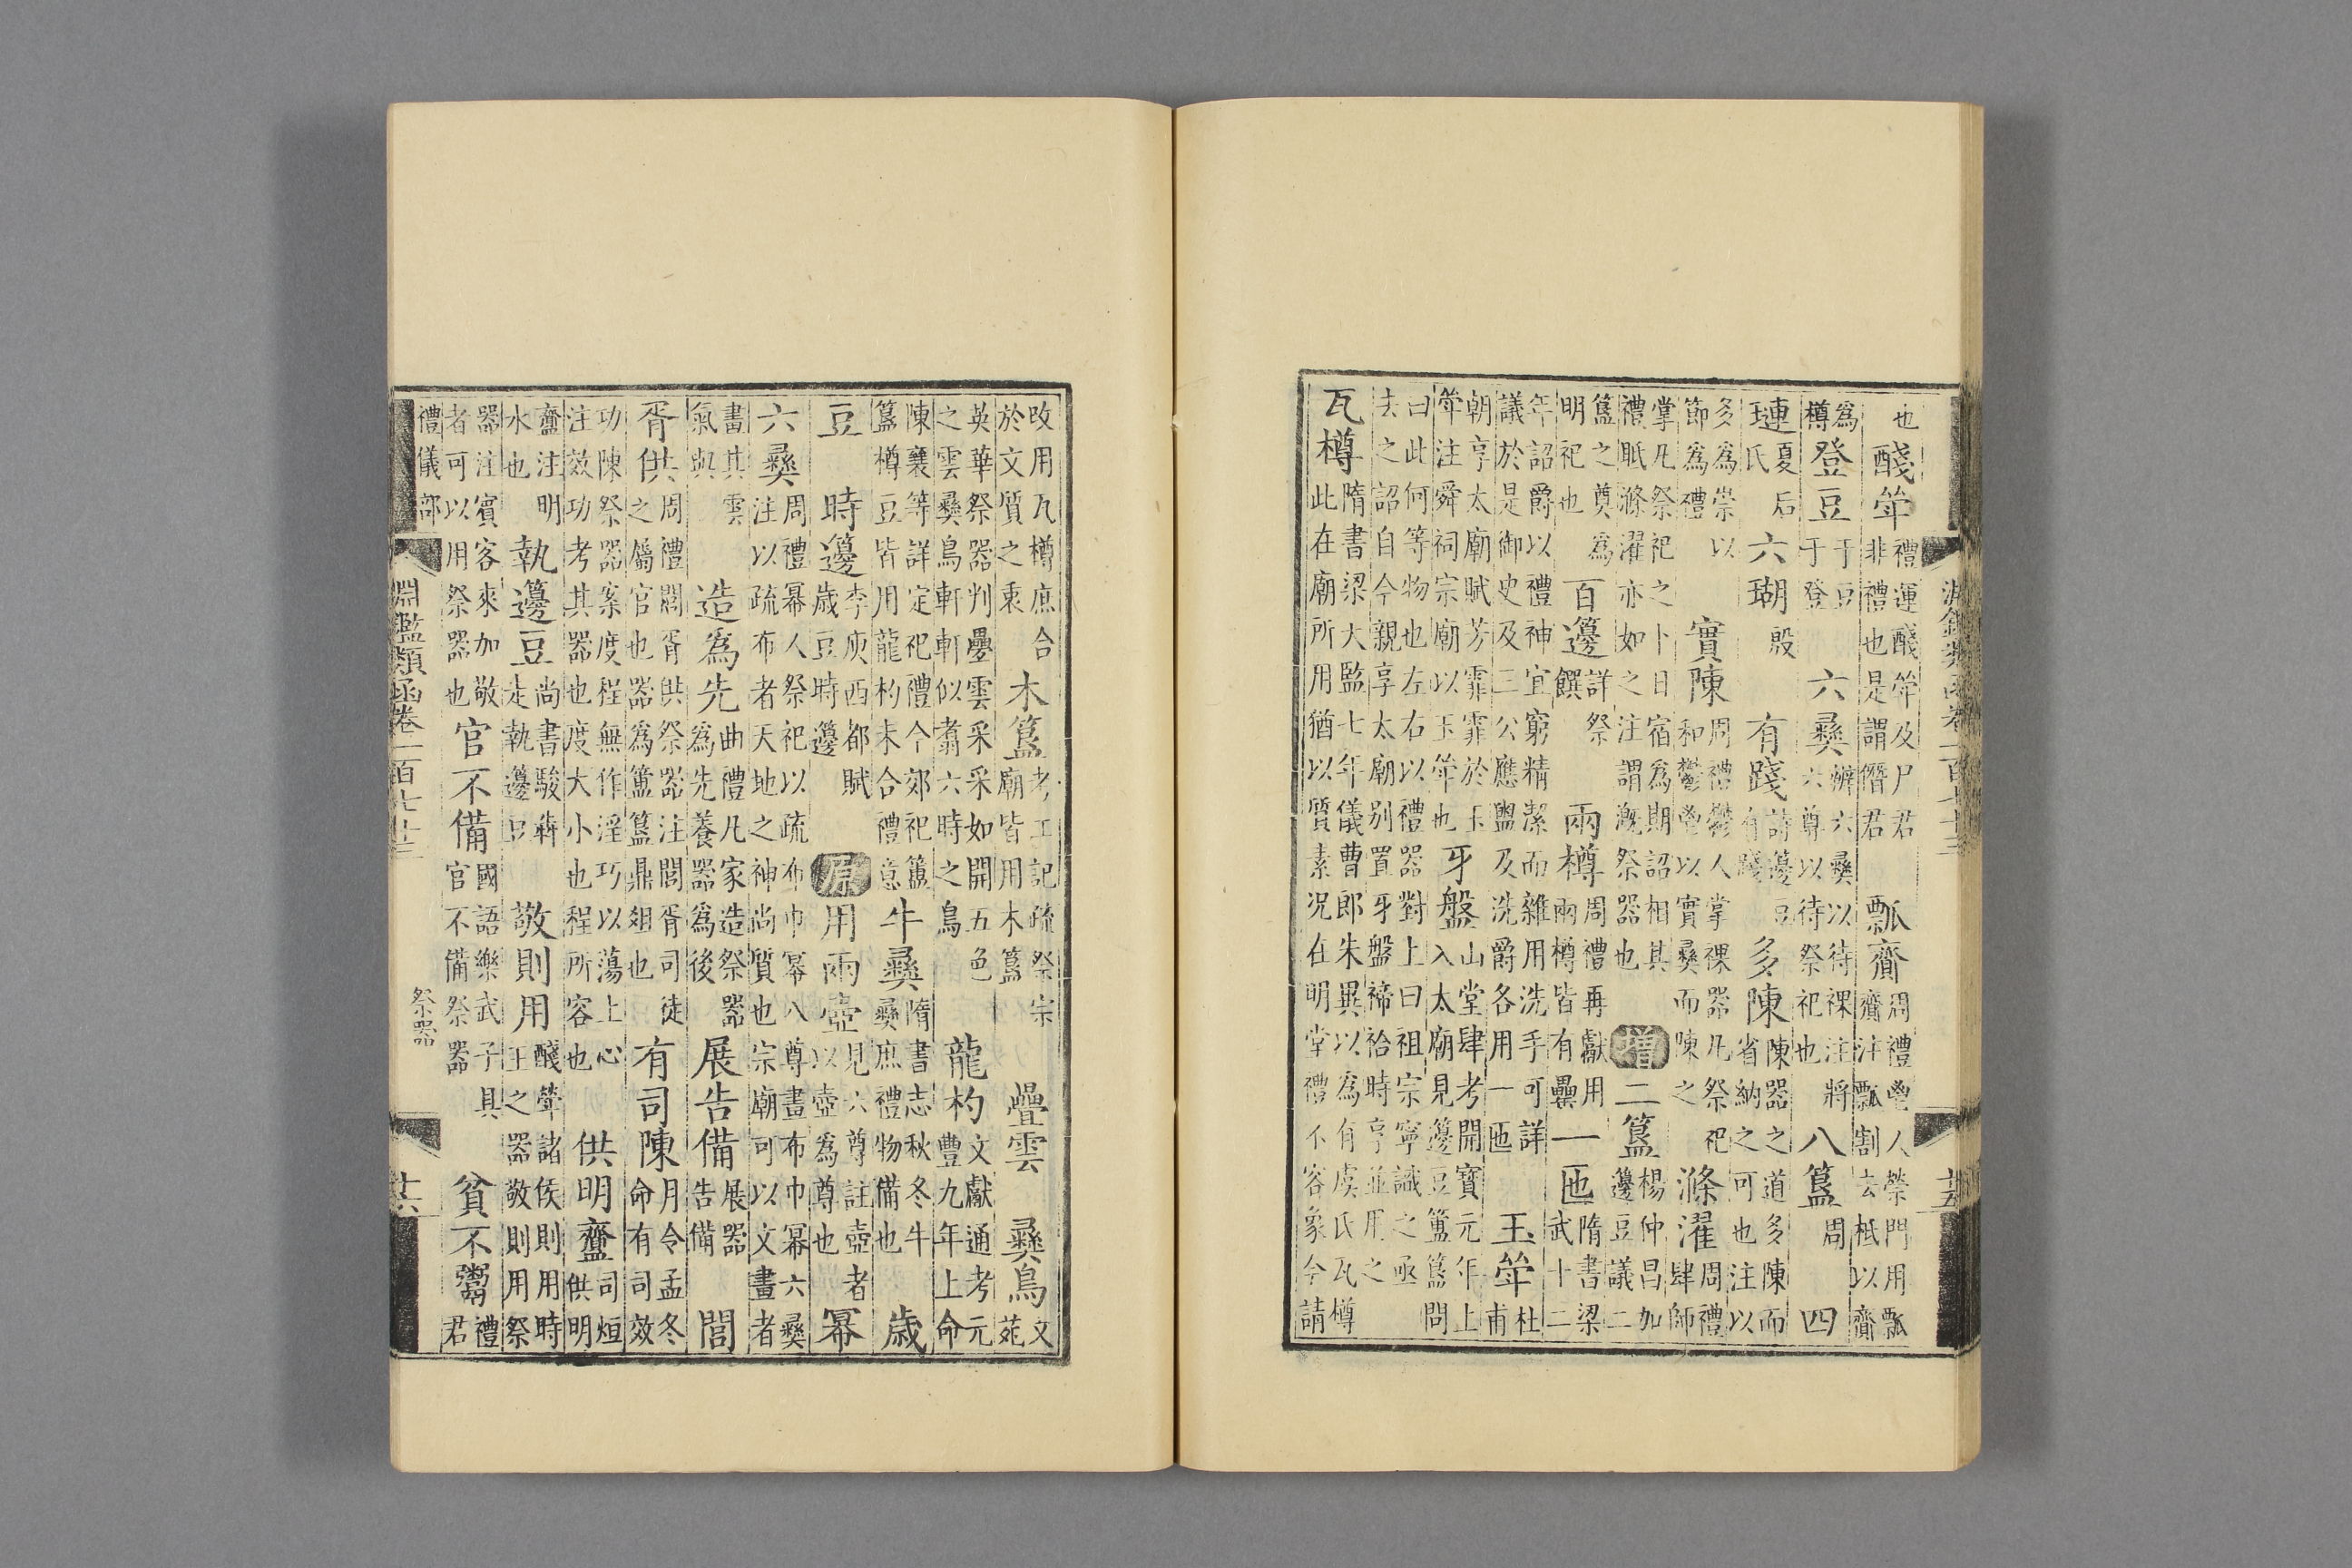 淵鑑類函卷一百七十三 十五
也醆斝禮運醆斝及尸君非禮也是謂僭君瓢齎周禮鬯人禜門用瓢齎注瓢割去柢以齎
為樽登豆于豆于登六彝辨六彝以待祼注將六尊以待祭祀也八簋周四
璉夏后氏六瑚殷有踐詩籩豆有踐多陳陳器之道多陳而省納之可也注以
多為崇以節為禮實陳周禮鬱人掌祼器凡祭祀和鬱鬯以實彝而陳之滌濯周禮肆師
掌凡祭祀之卜日宿為期詔相其禮眂滌濯亦如之注謂溉祭器也增二簋楊仲昌加籩豆議二
簋之奠為明祀也百籩詳祭饌兩樽周禮再獻用兩樽皆有罍一匜隋書梁武十二
年詔爵以禮神宜窮精潔而雜用洗手可詳議於是御史及三公應盥及洗爵各用一匜玉斝杜甫
朝享太廟賦芳霏霏於玉斝注舜祠宗廟以玉斝也牙盤山堂肆考開寶元年上入太廟見籩豆簠簋問
曰此何等物也左右以禮器對上曰祖宗寧識之亟去之詔自今親享太廟別置牙盤禘祫時享並用之
瓦樽隋書梁大監七年儀曹郎朱異以為有虞氏瓦樽此在廟所用猶以質素况在明堂禮不容象今請
改用瓦樽庶合於文質之衷木簋考工記疏祭宗廟皆用木簋疊雲彝鳥文苑
英華祭器判罍雲采采如開五色之雲彝鳥軒軒似翥六時之鳥龍杓文獻通考元豐九年上命
陳襄等詳定祀禮今郊祀簠簋樽豆皆用龍杓未合禮意牛彝隋書志秋冬牛彝庶禮物備也歲
豆時籩李庾西都賦歲豆時籩原用兩壺見六尊註壺者以壺為尊也冪
六彝周禮冪人祭祀以疏布巾冪八尊畫布巾冪六彝注以疏布者天地之神尚質也宗廟可以文畫者
畫其雲氣與造為先曲禮凡家造祭器為先養器為後展告備展器告備閭
胥供周禮閭胥供祭器注閭胥司徒之屬官也器為簠簋鼎俎也有司陳月令孟冬命有司效
功陳祭器案度程無作淫巧以蕩上心注效功考其器也度大小也程所容也供明齍司烜供明
齍注明水也執籩豆尚書駿犇走執籩豆敬則用醆斝諸侯則用時王之器敬則用祭
器注賓客來加敬者可以用祭器也官不備國語樂武子具官不備祭器貧不鬻禮君
禮儀部 淵鑑類函卷一百七十三 祭器 十六